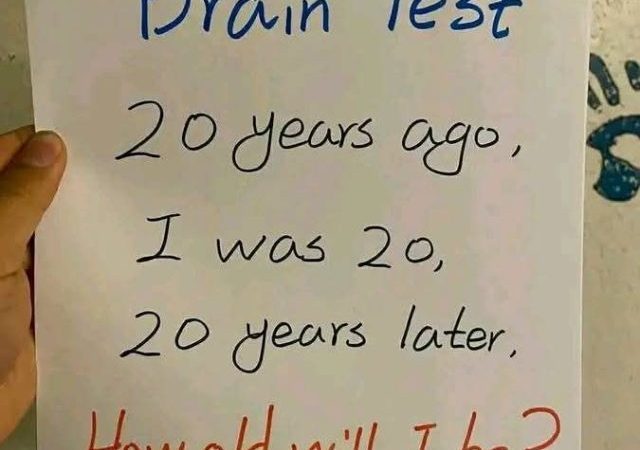 Brain Test
20 years ago,
I was 20,
20 years later,
How old will I be?